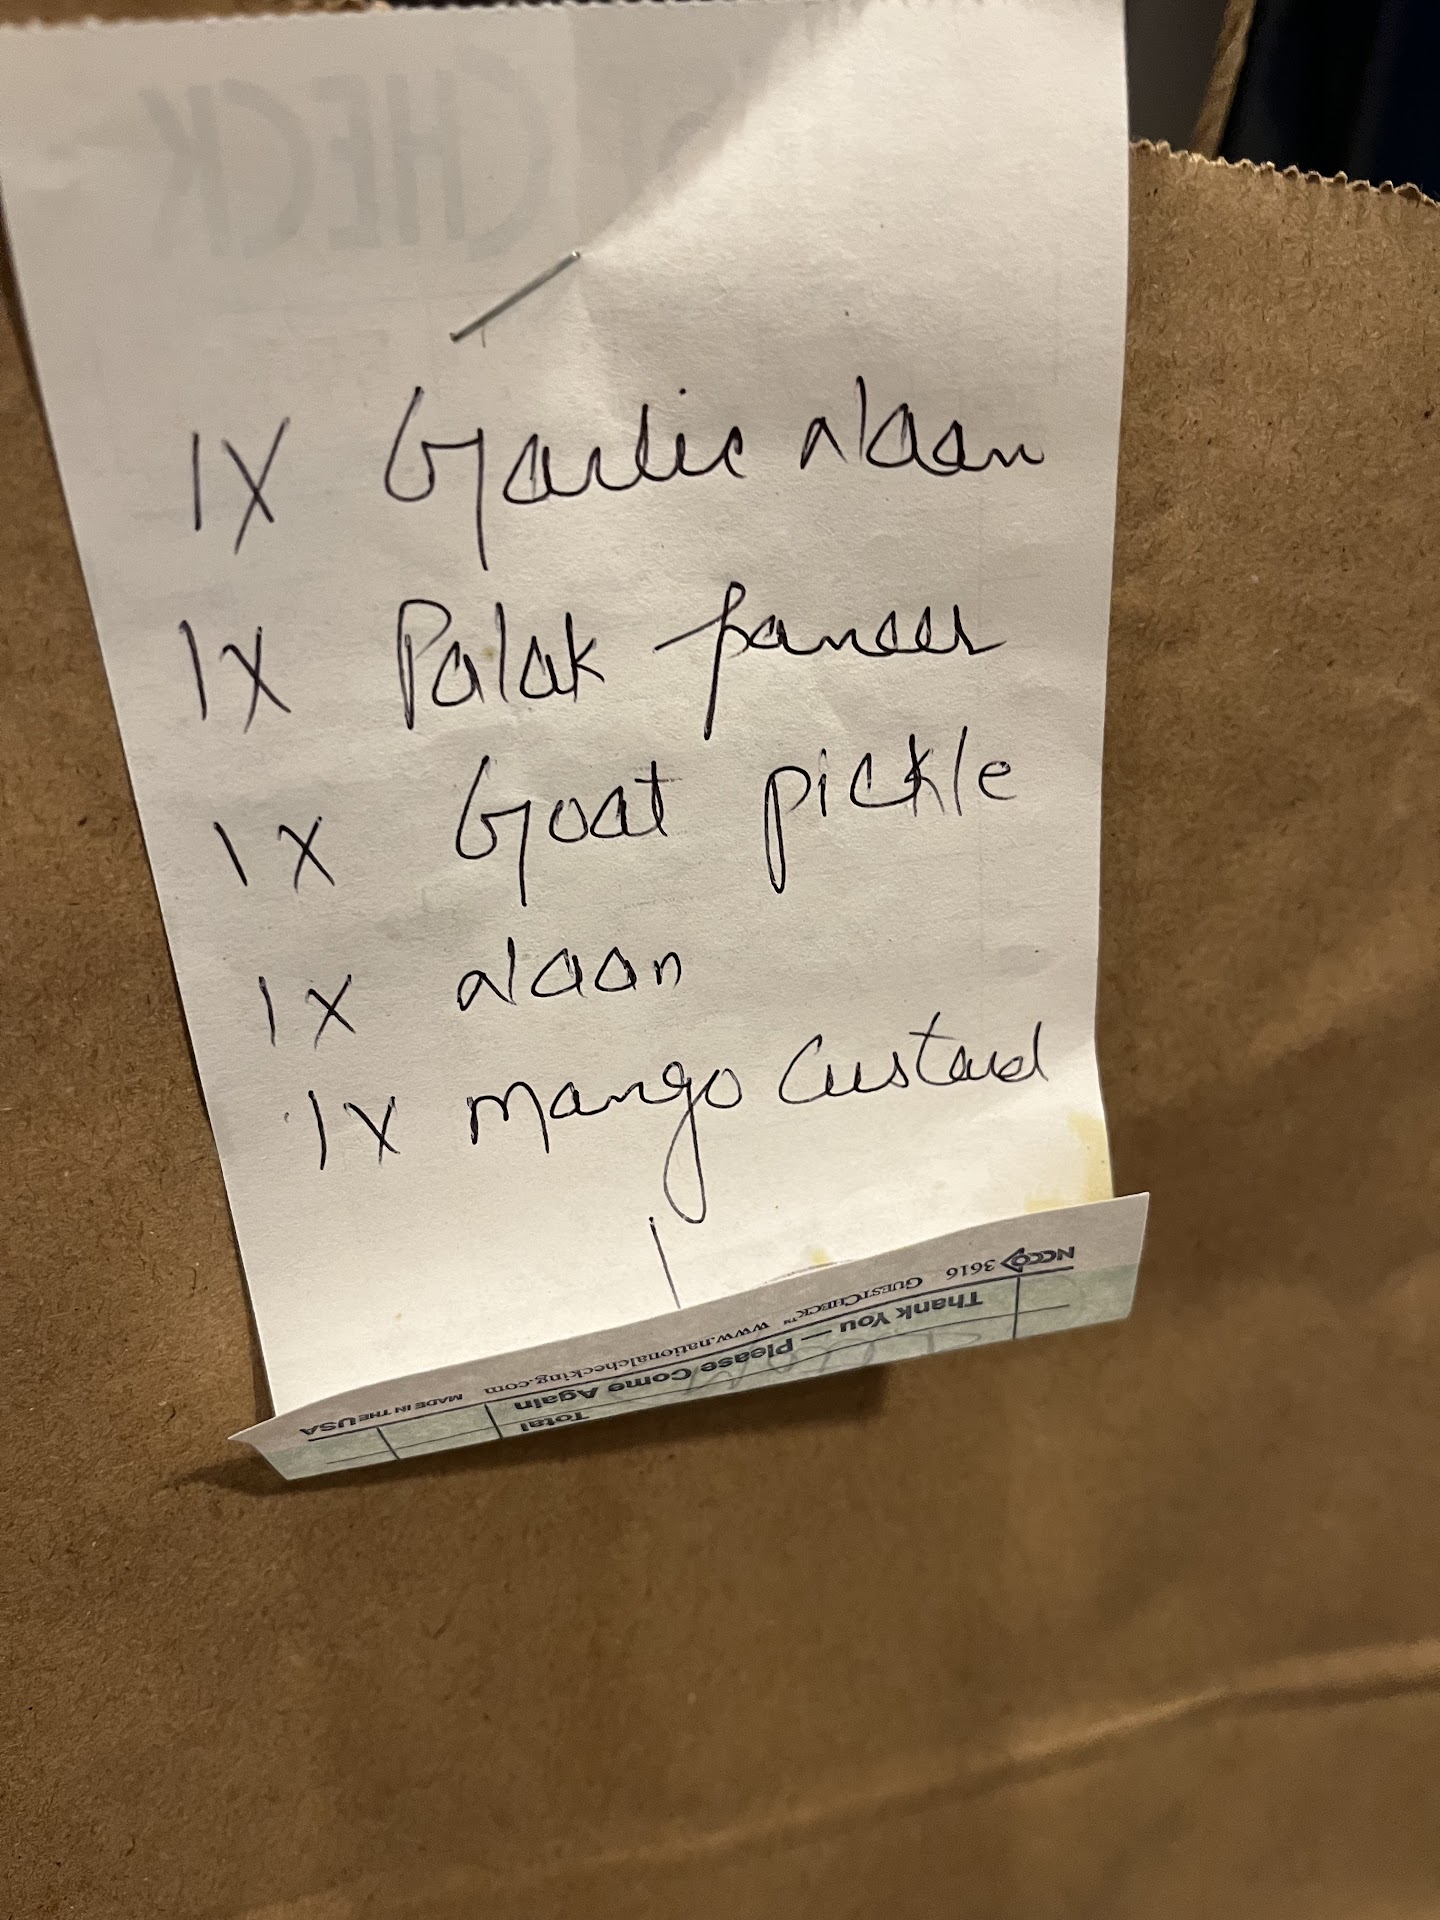 CHECK
1X Garlic Naan
1X Palak paneer
1X Goat pickle
1X Naan
1X Mango Custard
NCCO 3616 GUESTCHECK™ www.nationalchecking.com MADE IN THE USA
Thank You — Please Come Again
Total